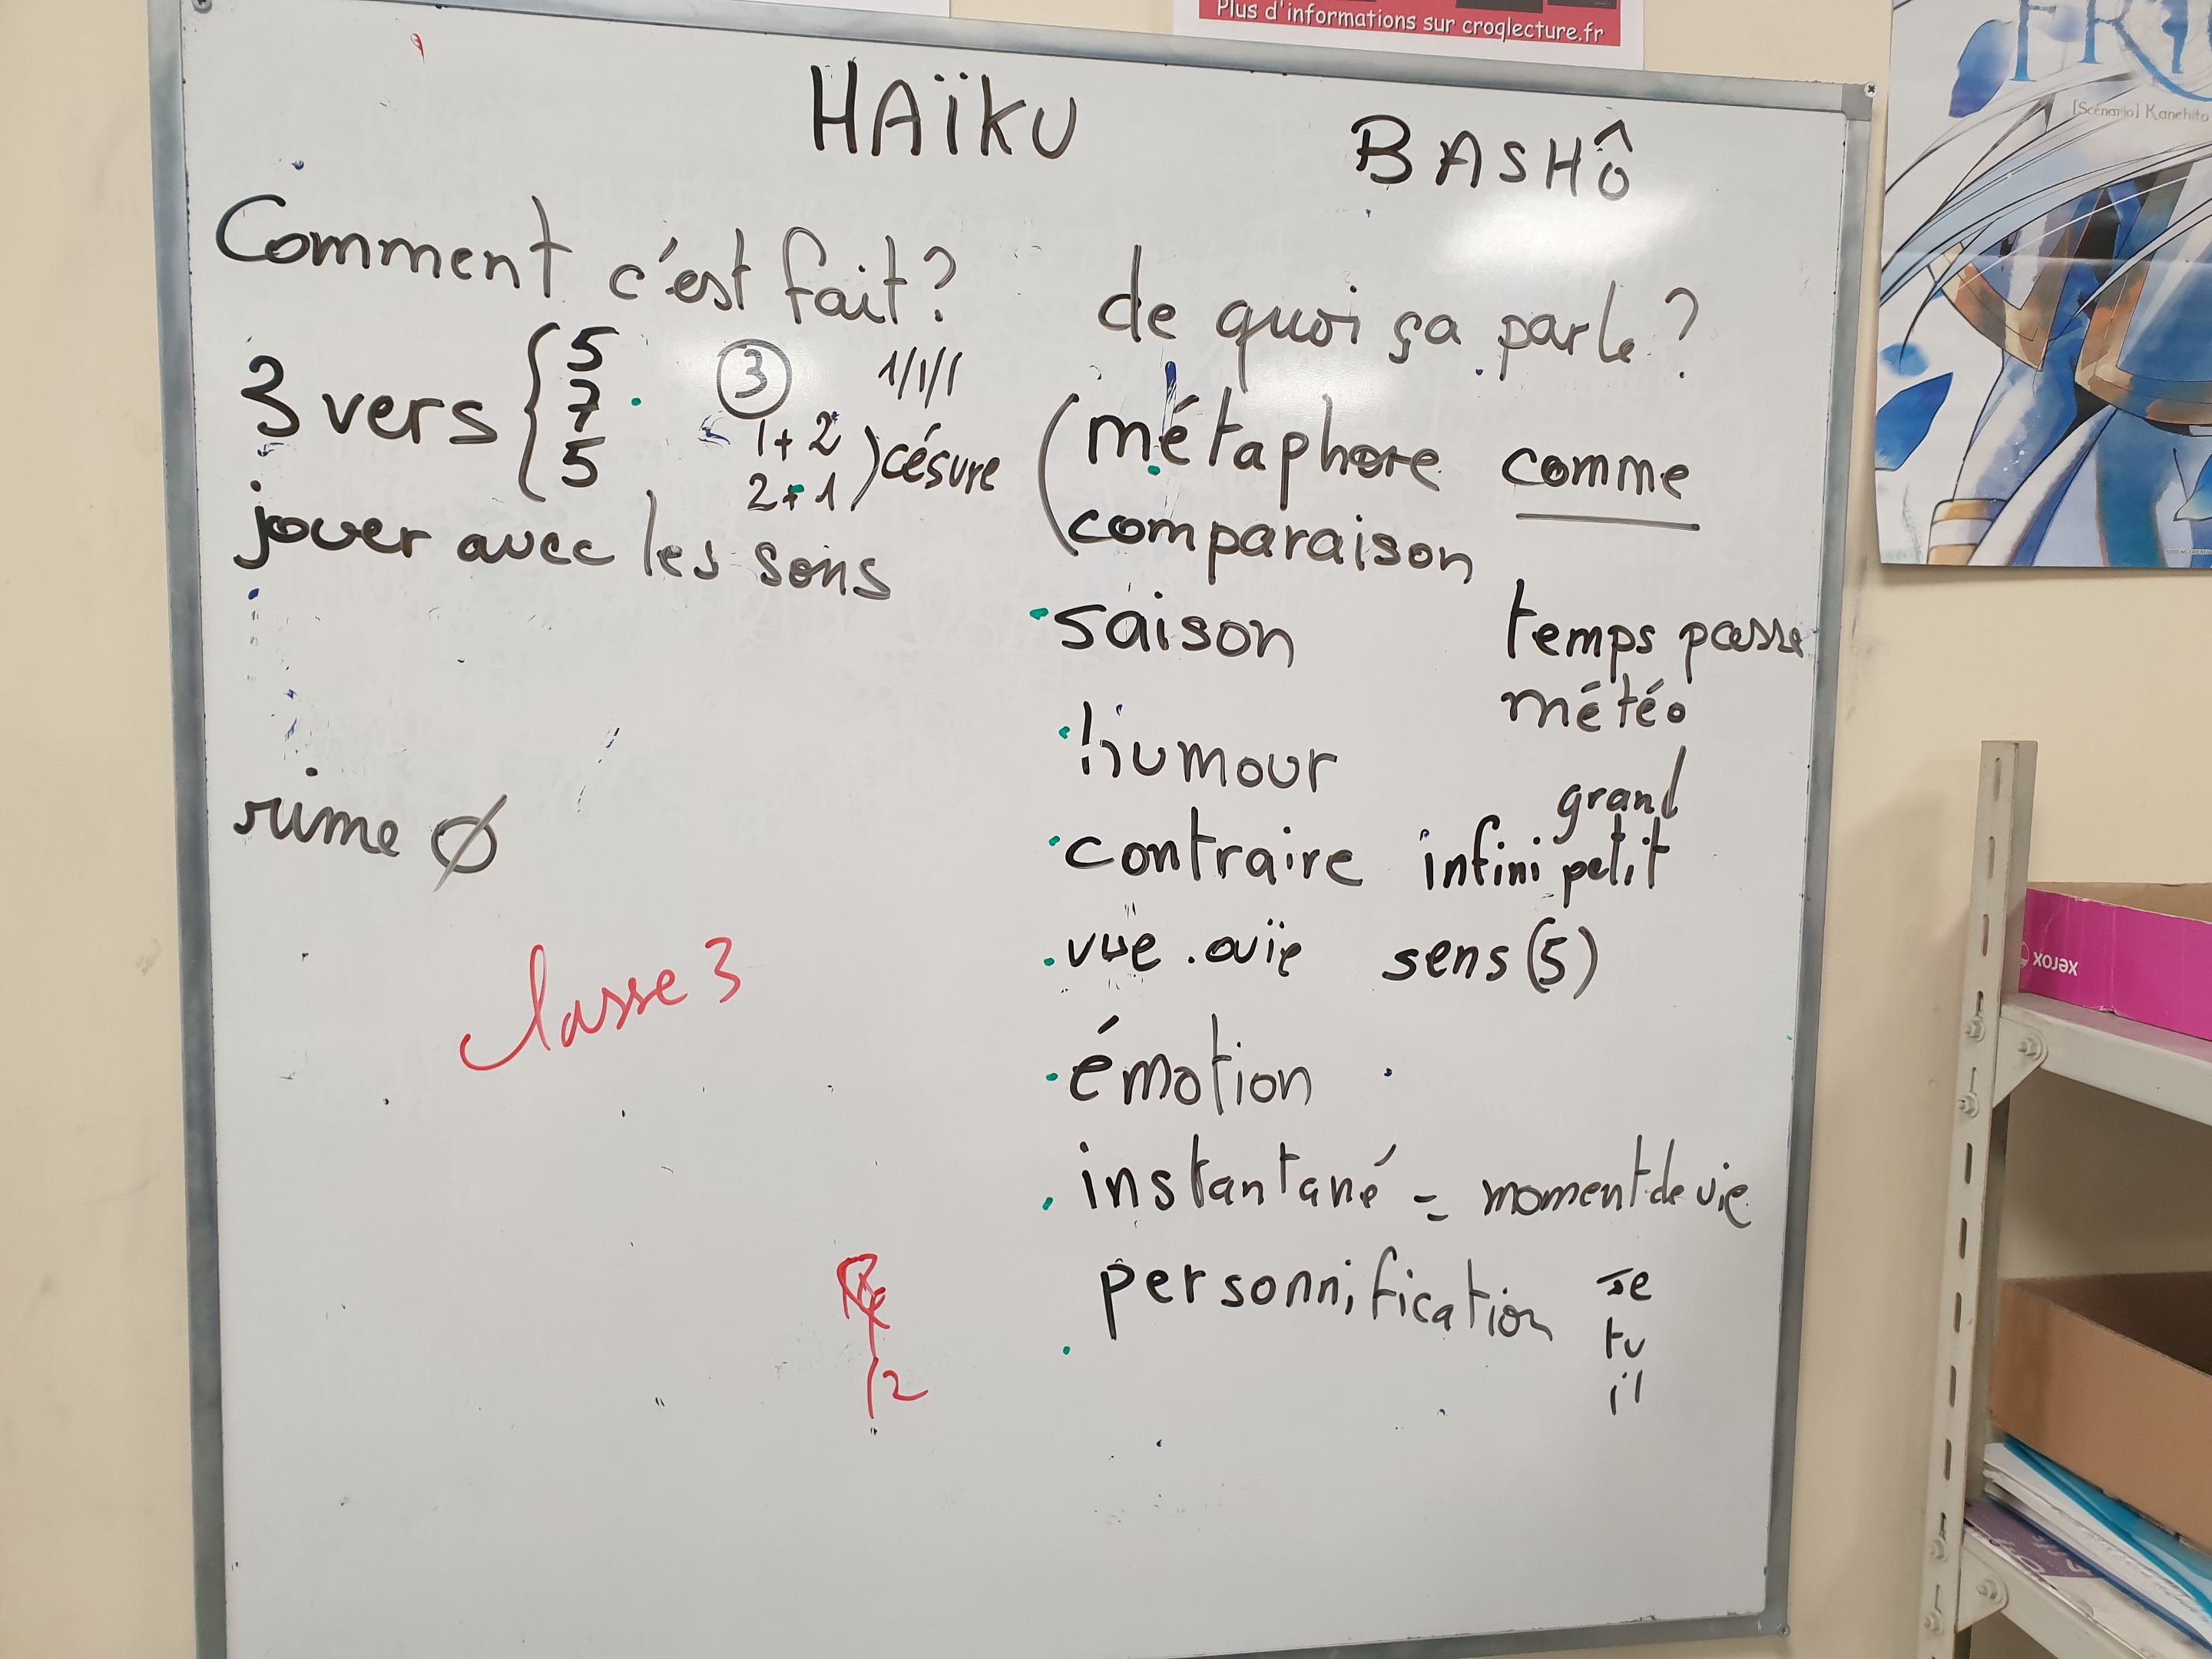 Plus d'informations sur croqlecture.fr
[Scénario] Kanehito
HAÏKU
BASHÔ
Comment c'est fait?
3 vers { 5 7 5
3
1/1/1
1+2
2+1
) césure
jouer avec les sons
rime Ø
classe 3
12
de quoi ça parle?
( métaphore comme
comparaison
saison
temps passe
météo
humour
contraire infini grand
petit
vue . ouïe sens (5)
émotion
instantané = moment de vie
personnification
je
tu
il
xerox